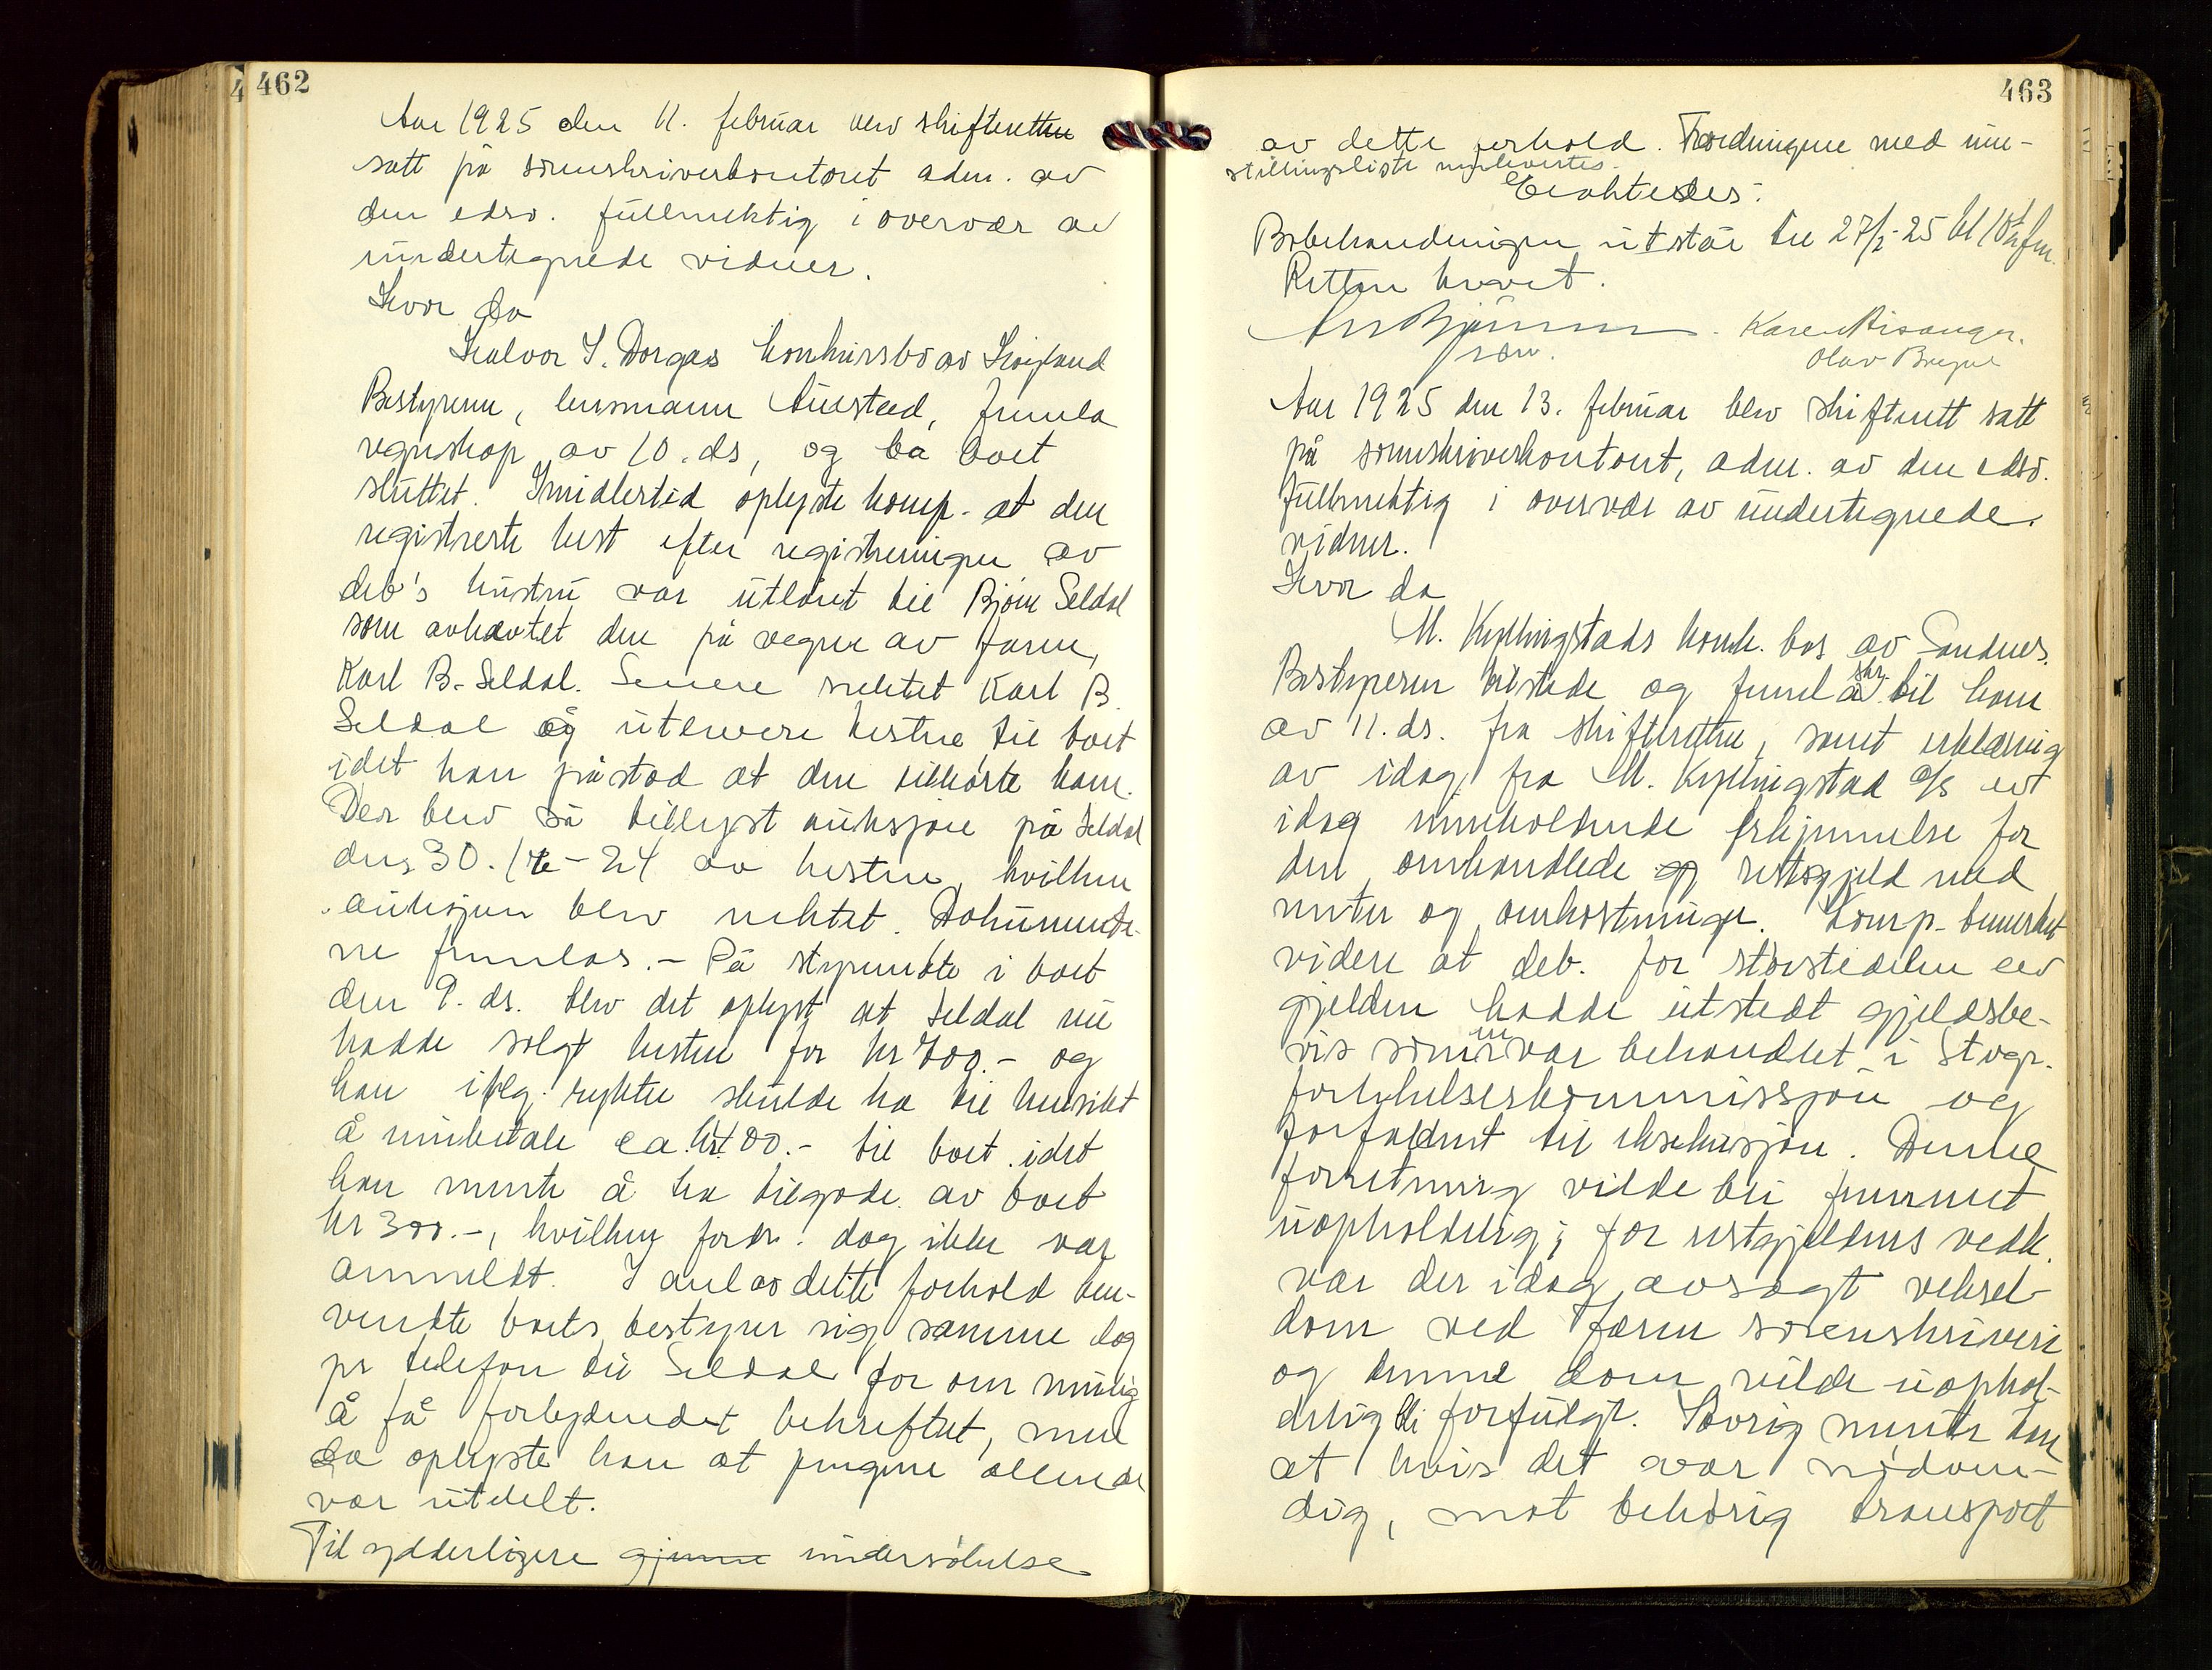 462
Aar 1925 den 11. februar blev skifteretten
satt på sorenskriverkontoret adm. av
den edsv. fullmektig i overvær av
undertegnede vidner.
Hvor da
Halvor S. Dorgas konkursbo av Høiland
Bestyreren, lensmann Auestad, fremla
regnskap av 10. ds, og ba boet
sluttet. Imidlertid oplyste komp. at den
registrerte hest efter registreringen av
deb's hustru var utlånt til Bjørn Seldal
som avhentet den på vegne av faren,
Karl B. Seldal. Senere nektet Karl B.
Seldal å utlevere hesten til boet
idet han påstod at den tilhørte ham.
Der blev så tillyst auksjon på Seldal
den 30. 12-24 av hesten, hvilken
auksjon blev nektet. Dokumente-
ne fremlas. - På skyndte i boet
den 9. ds. blev det oplyst at Seldal nu
hadde solgt hesten for kr 700.- og
han iflg. rykter skulde ha til hensikt
å innbetale ca. kr 400.- til boet idet
han mente å ha tilgode av boet
kr 300.-, hvilken fordr. dog ikke var
anmeldt. I anl av dette forhold hen-
vendte boets bestyrer sig samme dag
pr telefon til Seldal for om mulig
å få forlydendet bekreftet, men
da oplyste han at pengene allerede
var utdelt.
Til ydderligere gjenne undersøkelse
463
av dette forhold. Fordringene med inn-
stillingsliste innlevertes.
Eraktedes:
Bobehandlingen utstår til 27/2-25 kl 10 1/2 fm.
Retten hevet.
Karen Risanger.
Olav
Aar 1925 den 13. februar blev skifterett satt
på sorenskriverkontoret, adm. av den edsv.
fullmektig i overvær av undertegnede
vidner.
Hvor da
M. Kyllingstads konk. bos av Sandnes.
Bestyreren tilstede og freml skr. til ham
av 11. ds. fra skifteretten, samt erklæring
av idag fra M. Kyllingstad A/S
idag inneholdende frkjennelse for
den omhandlede og restgjeld med
renter og omkostninger. Komp. bemerket
videre at deb. for størstedelen av
gjelden hadde utstedt gjeldsbe-
vis som nu var behandlet i Stvgr.
forlikelseskommissjon og
forfaldent til eksekusjon. Denne
forretning vilde bli fremmet
uopholdelig; for restgjeldens vedk.
var der idag avsagt veksel-
dom ved Jæren sorenskriveri
og denne dom vilde uophol-
delig bli forfulgt. Iøvrig mente han
at hvis det var nødven-
dig, mot behørig transport